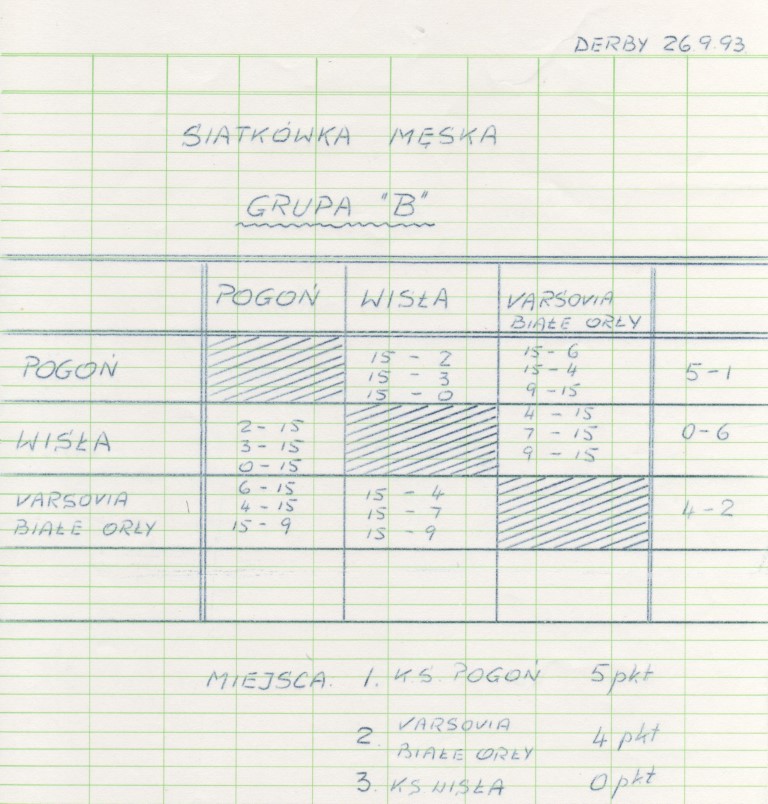 DERBY 26 9.93
SIATKÓWKA MĘSKA
GRUPA "B"
POGOŃ WISŁA VARSOVIA
BIAŁE ORŁY
POGOŃ 15 - 2 15 - 6 5 - 1
15 - 3 15 - 4
15 - 0 9 - 15
WISŁA 2 - 15 4 - 15 0 - 6
3 - 15 7 - 15
0 - 15 9 - 15
VARSOVIA 6 - 15 15 - 4 4 - 2
BIAŁE ORŁY 4 - 15 15 - 7
15 - 9 15 - 9
MIEJSCA. 1. K.S. POGOŃ 5 pkt
2. VARSOVIA
BIAŁE ORŁY 4 pkt
3. KS WISŁA 0 pkt